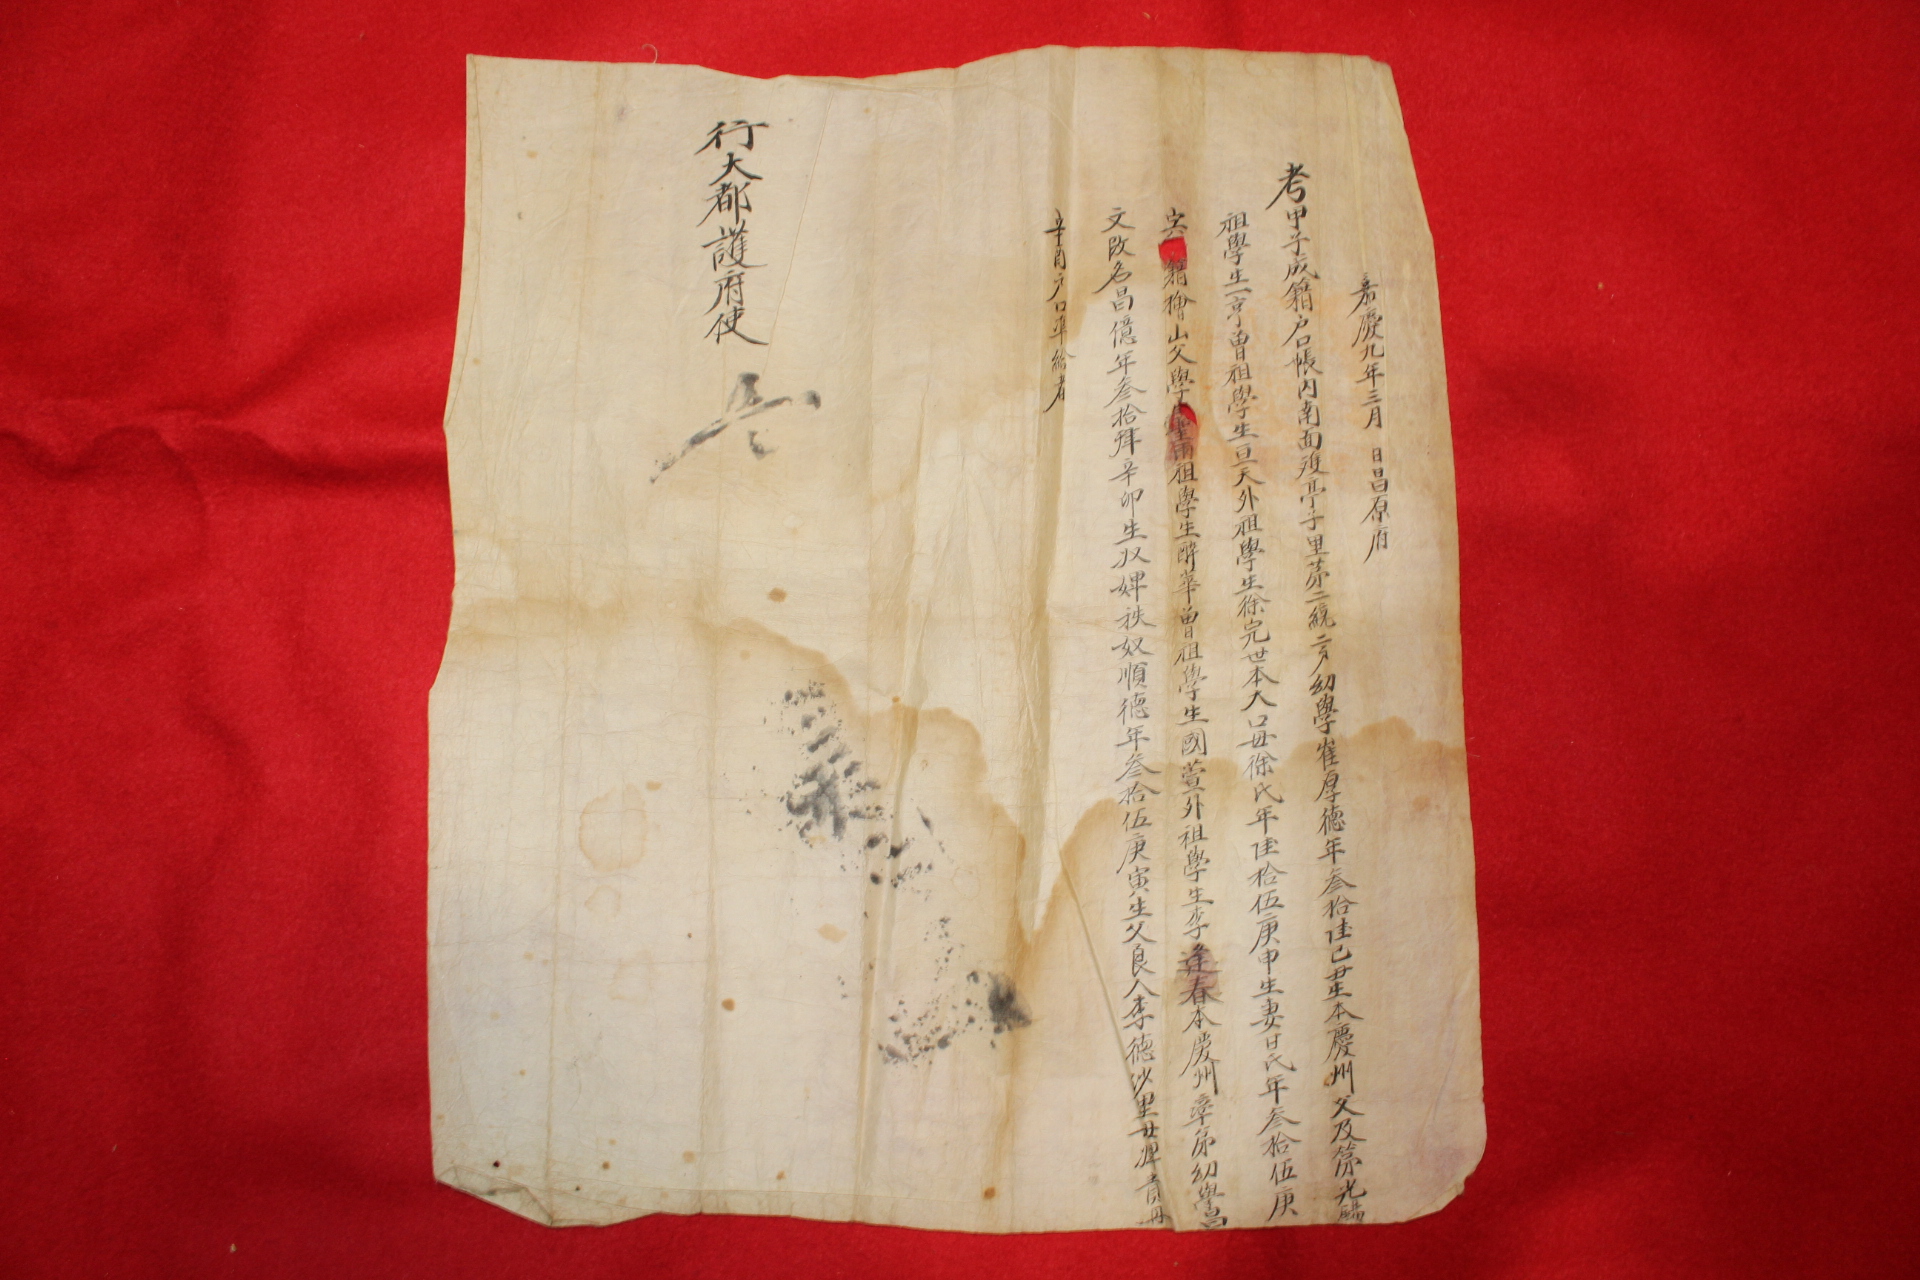 嘉慶九年三月 日昌原府
考甲子成籍戶口帳內南面 亭子里第二統二戶幼學崔厚德年叁拾 己丑生本慶州父及第光
祖學生 亨曾祖學生亘天外祖學生徐完世本大口母徐氏年 拾伍庚申生妻甘氏年叁拾伍庚
寅 籍檜山父學生聖雨祖學生醉華曾祖學生國萱外祖學生李逢春本慶州率弟幼學昌
文改名昌億年叁拾 辛卯生奴婢秩奴順德年叁拾伍庚寅生父良人李德沙里母婢
辛酉戶口準給者
行大都護府使